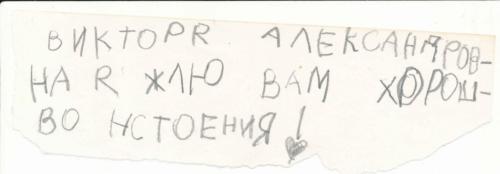 ВИКТОРЯ АЛЕКСАНДРОВ-
НА Я ЖЛЮ ВАМ ХОРОШ-
ВО НСТОЕНИЯ!